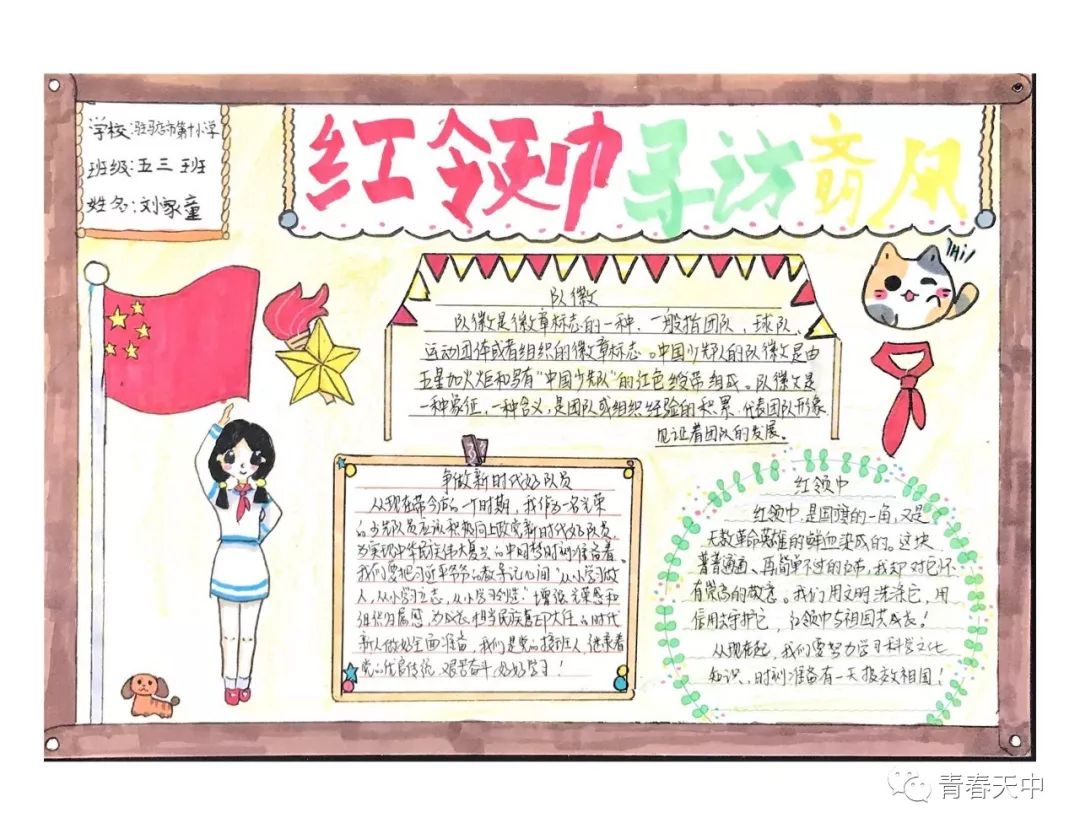 学校:驻马店市第十小学
班级:五三班
姓名:刘家童
红领巾寻访文明风
Hi!
队徽
队徽是徽章标志的一种,一般指团队、球队、
运动团体或者组织的徽章标志。中国少先队的队徽是由
五星加火炬和写有“中国少先队”的红色绶带组成。队徽是
一种象征,一种含义,是团队或组织经验的积累,代表团队形象
见证着团队的发展。
争做新时代好队员
从现在带今后的一个时期,我作为一名光荣
的少先队员应该积极向上做党新时代好队员,
为实现中华民族伟大复兴的中国梦时刻准备着。
我们要把习近平爷爷的教导记心间“从小学习做
人,从小学习立志,从小学习创造”增强光荣感和
组织归属感,为成长担当民族复兴大任的时代
新人做好全面准备,我们是党的接班人,继承着
党的优良传统,艰苦奋斗,好好学习!
红领巾
红领巾,是国旗的一角,又是
无数革命英雄的鲜血染成的。这块
普普通通、再简单不过的红布,我却对它怀
有崇高的敬意。我们用文明洗涤它,用
信用守护它,红领巾与祖国共成长!
从现在起,我们要努力学习科学文化
知识,时刻准备有一天报效祖国!
青春天中